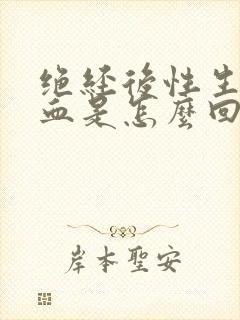 绝经後性生
血是怎麼回
岸本聖安